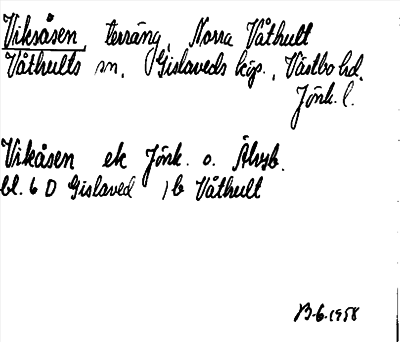 Viksåsen, terräng, Norra Våthult
Våthults sn, Gislaveds köp., Västbo hd.
Jönk. l.
Vikåsen ek Jönk. o. Älvsb.
bl. 6 D Gislaved 1b Våthult
B-G. 1958